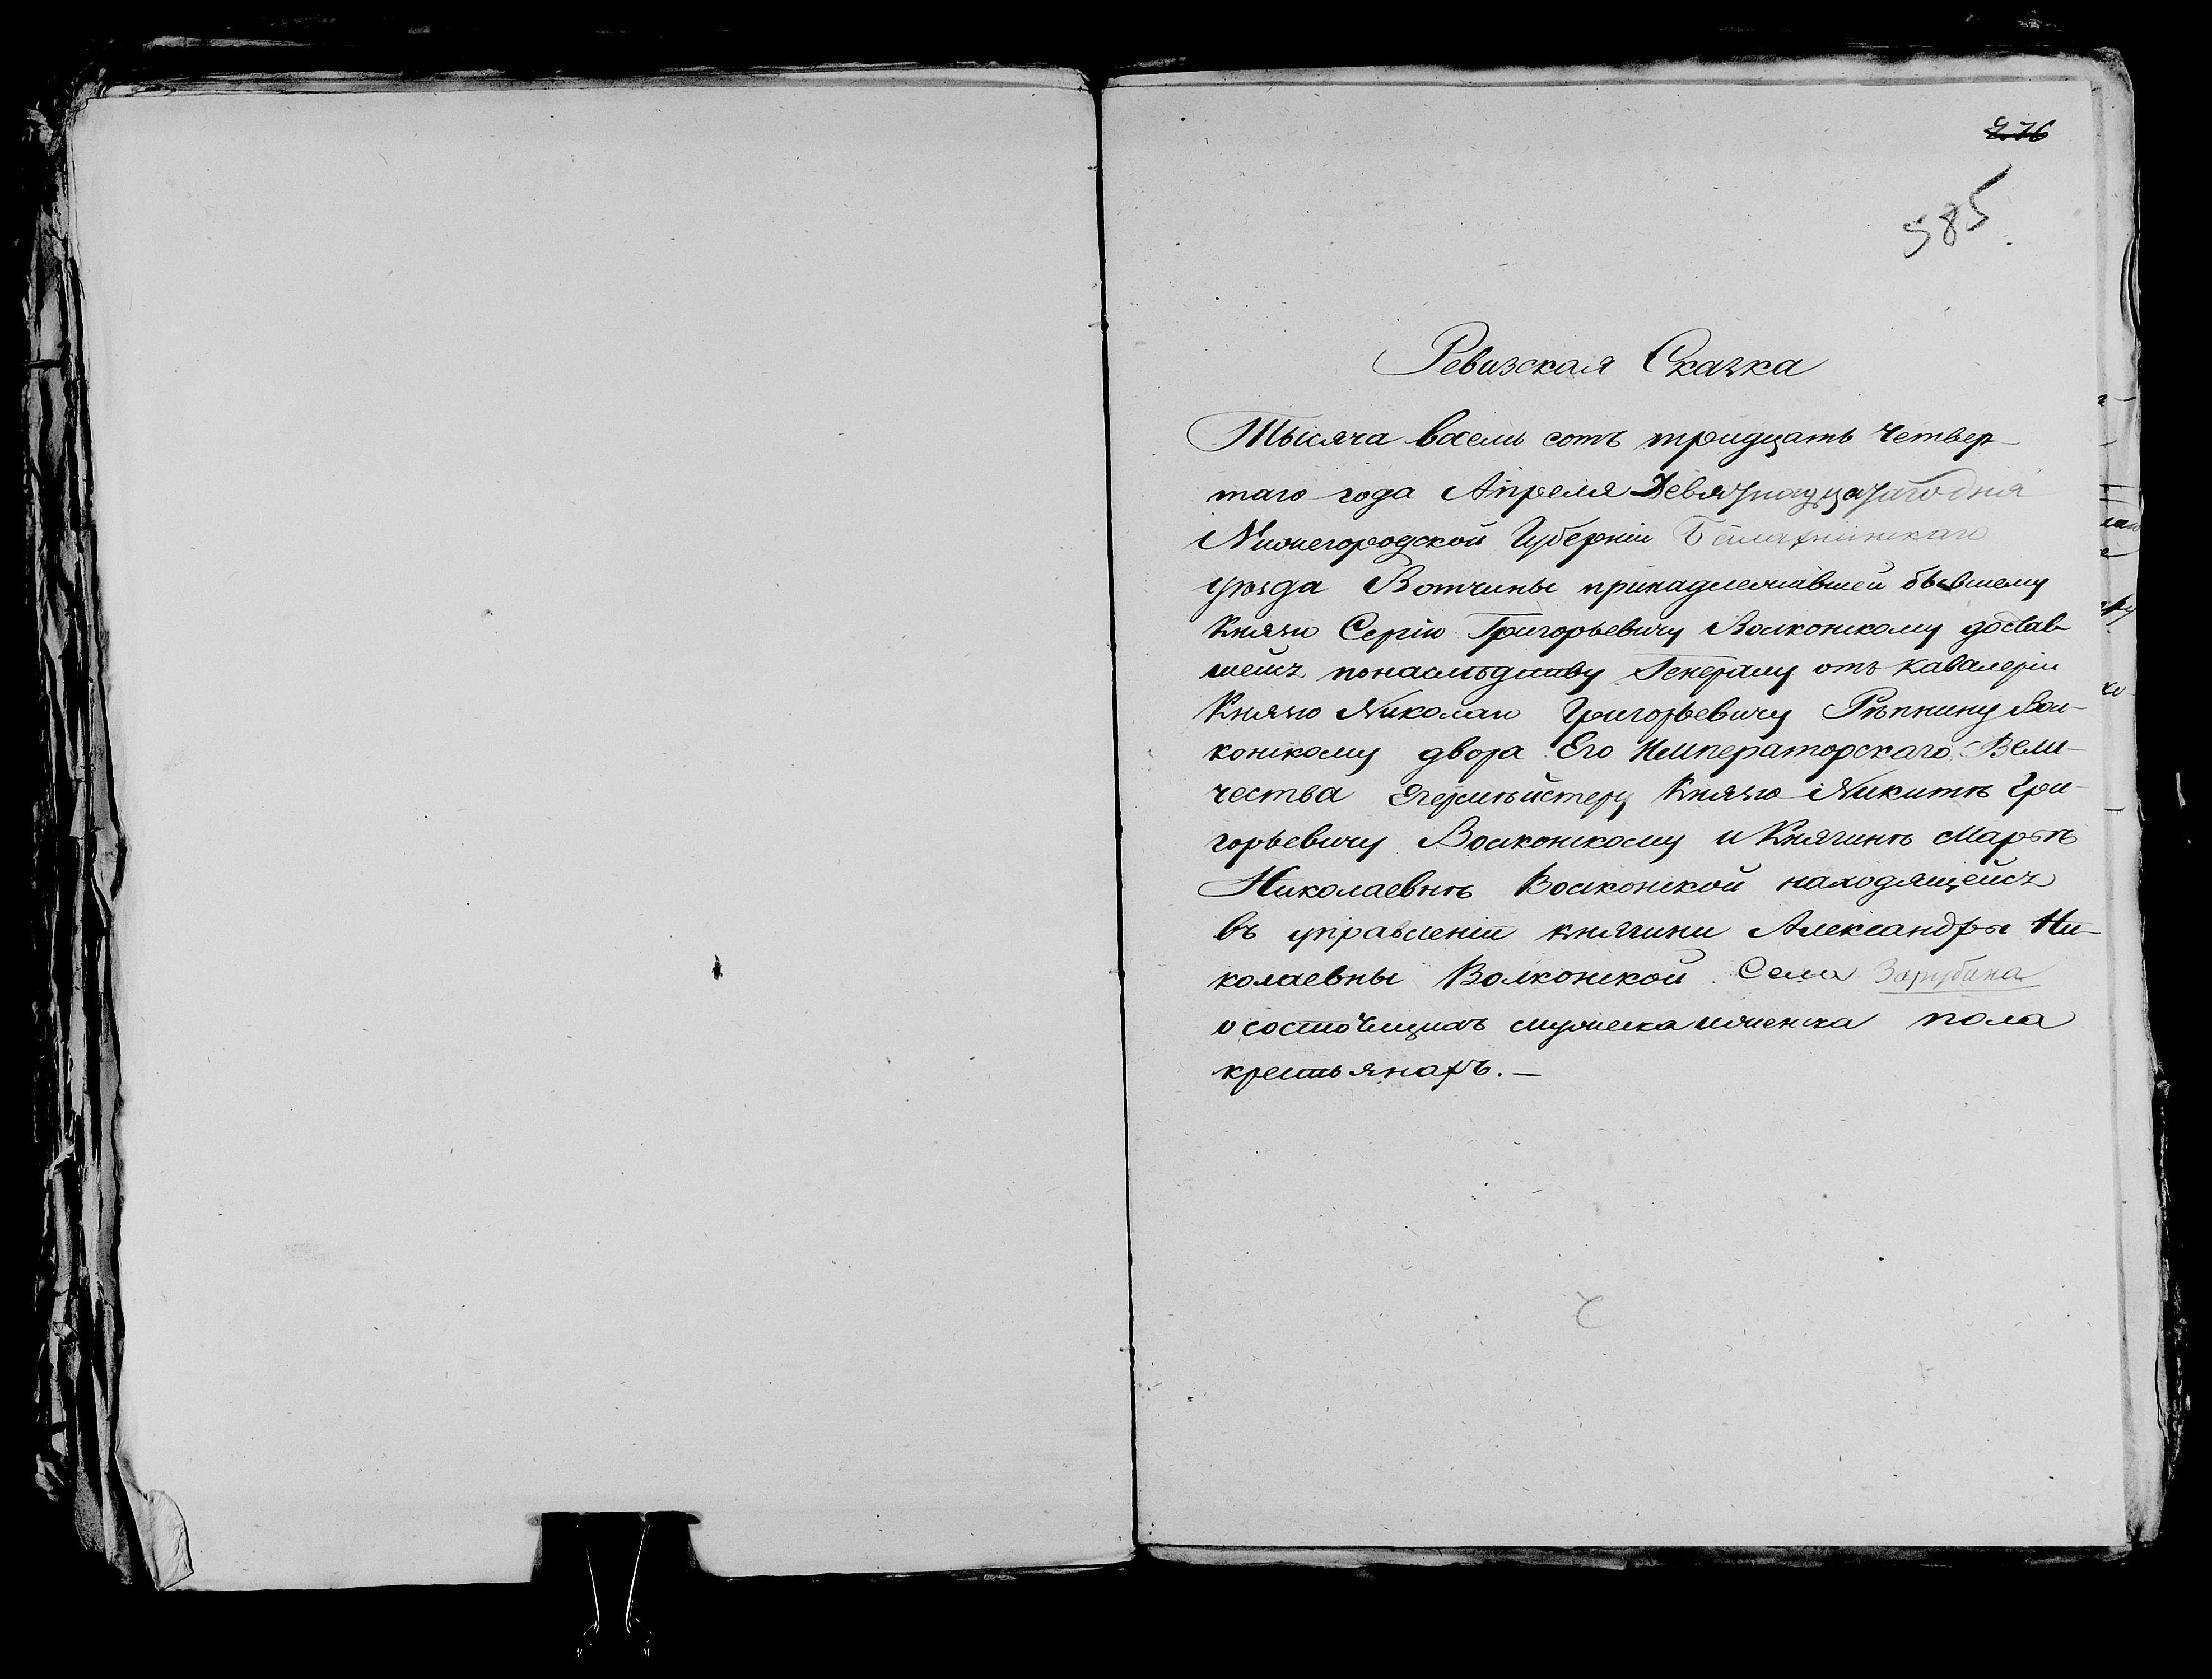 276
585.
Ревизская Сказка
Тысяча восемь сотъ тридцать четвер-
таго года Апреля Девятнадцатаго дня
Нижегородской Губерніи Балахнинскаго
уѣзда Вотчины принадлежавшей бывшему
Князю Сергію Григорьевичу Волконскому достав-
шейсѧ понаслѣдству Генералу отъ кавалеріи
Князю Николаю Григорьевичу Рѣпнину Вол-
конскому двора Его Императорскаго Вели-
чества Егермѣйстеру Князю Никитѣ Гри-
горьевичу Волконскому и Княгинѣ Марьѣ
Николаевнѣ Волконской находящейсѧ
въ управленіи княгини Александры Ни-
колаевны Волконской Села Зарубина
о состоящихъ мужеска иженска пола
крестьянахъ. —